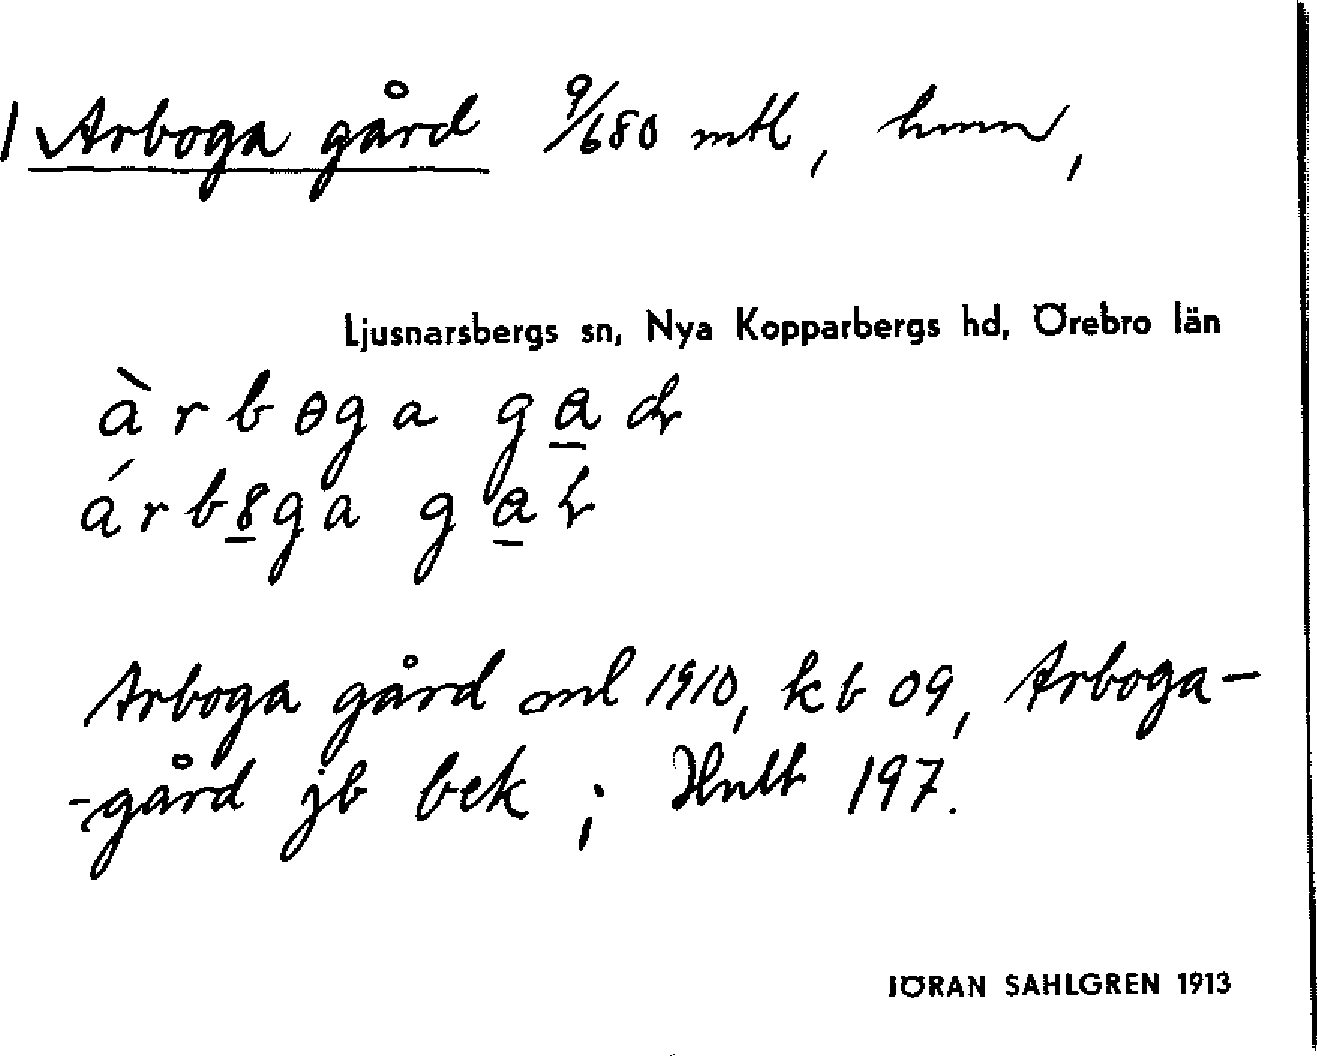 Arboga gård 9/680 mtl, hmn,
Ljusnarsbergs sn, Nya Kopparbergs hd, Örebro län
àrboga
árb
Arboga gård ml 1910, kb 09, Arboga-
-gård jb bek; Hult 197.
JÖRAN SAHLGREN 1913